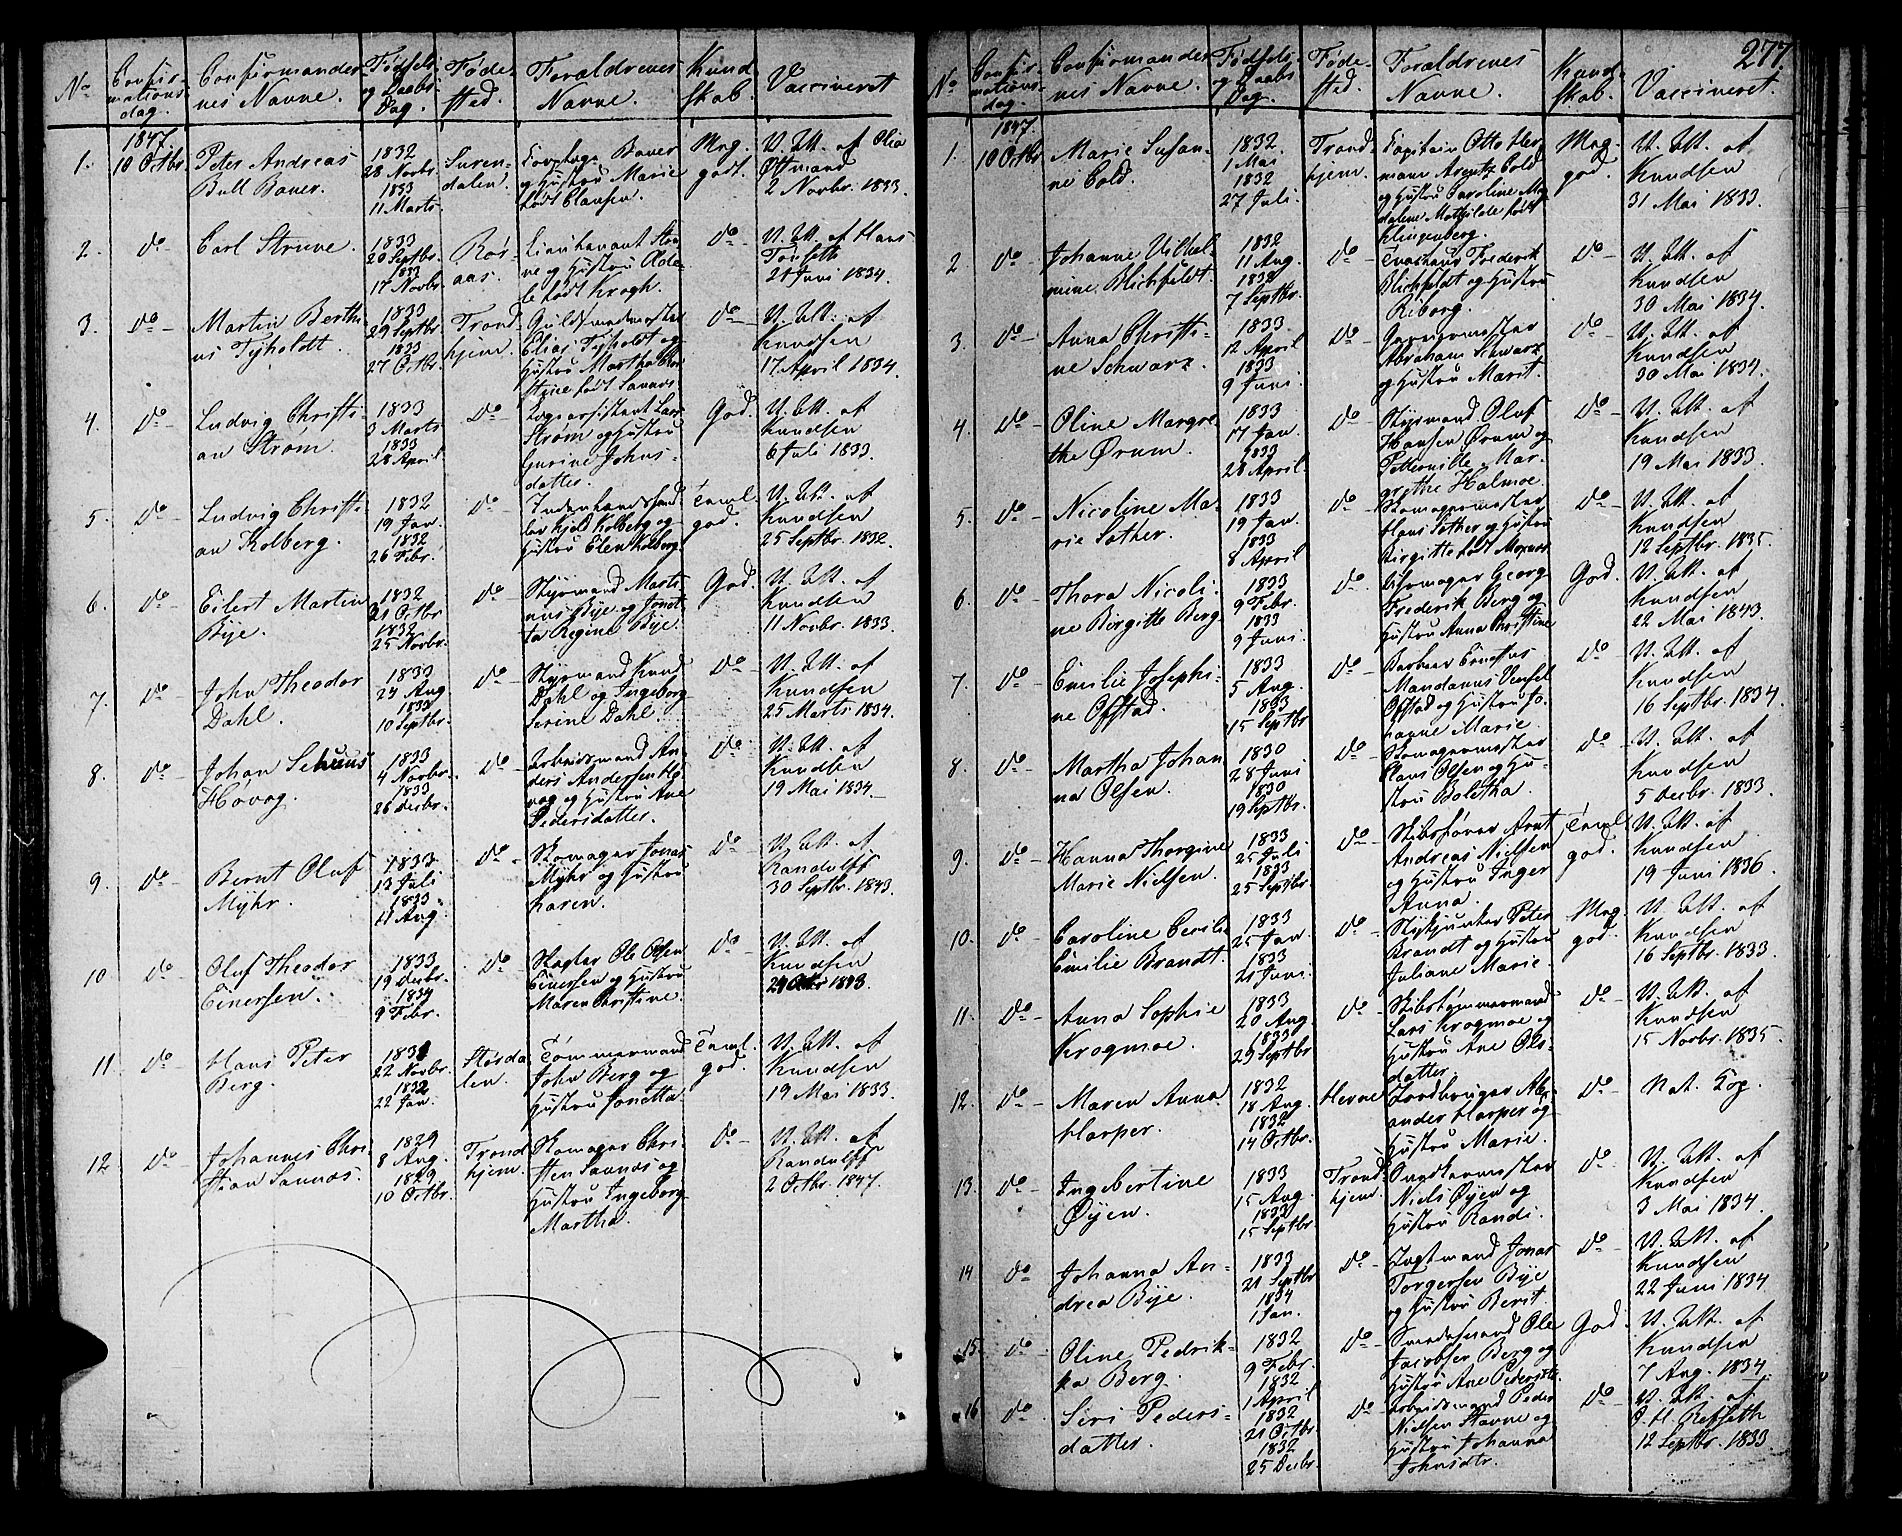 277
No
Confir-
mations-
dag.
Confirmander-
nes Navne.
Fødsels
og Daabs
Dag.
Føde-
sted.
Forældrenes
Navne.
Kund
skab.
Vaccineret
1.
1847
10 Octbr.
Peter Andreas
Bull Bauer.
1832
28 Novbr.
1833
11 Marts
Suren-
dalen.
Bauer
og Hustru Marie
født Clausen.
Mng.
godt.
V. Att. af Ole
2 Novbr. 1833.
2.
do
Carl Struve.
1833
20 Septbr.
1833
17 Novbr.
Rør-
aas.
Lieutenant Stru-
ve og Hustru Ade-
le født Krogh.
do
V. Att. af Hans
Torseth
21 Juni 1834.
3.
do
Martin Berth-
us Tyholdt.
1833
29 Septbr.
1833
27 Octbr.
Trond
hjem.
Guldsmedmester
Elias Tyholdt og
Hustru Martha
født Sannes.
do
V. Att. af
Knudsen
17 April 1834.
4.
do
Ludvig Christi-
an Strøm.
1833
3 Marts
1833
28 April
do
Lars
Strøm og Hustru
Gurine Johns-
datter.
God.
V. Att. af
Knudsen
6 Juli 1833.
5.
do
Ludvig Christi-
an Kolberg.
1832
19 Jan.
1832
26 Febr.
do
Kjeld Kolberg og
Hustru Elen Kolberg.
Taml.
god.
V. Att. af
Knudsen
25 Septbr. 1832.
6.
do
Eilert Martin
Bye.
1832
21 Octbr.
1832
25 Novbr.
do
Styrmand Marti-
nus Bye og Jonet-
ta Regine Bye.
God.
V. Att. af
Knudsen
11 Novbr. 1833.
7.
do
John Theodor
Dahl.
1833
24 Aug.
1833
10 Septbr.
do
Styrmand Knud
Dahl og Ingeborg
Serine Dahl.
do
V. Att. af
Knudsen
25 Marts 1834.
8.
do
Johan
Høvag.
1833
4 Novbr.
1833
26 Decbr.
do
Arbeidsmand An-
ders Andersen Hø-
vag og Hustru Ane
Pedersdatter.
do
V. Att. af
Knudsen
19 Mai 1834.
9.
do
Bernt Oluf
Myhr.
1833
13 Juli
1833
11 Aug.
do
Skomager Jonas
Myhr og Hustru
Karen.
do
V. Att. af
Randulff
30 Septbr. 1843.
10
do
Oluf Theodor
Einersen.
1833
19 Decbr.
1834
9 Febr.
do
Slagter Ole Olsen
Einersen og Hustru
Maren Christine.
do
V. Att. af
Knudsen
1843.
11.
do
Hans Peter
Berg.
1831
22 Novbr.
1832
22 Jan.
Størda-
len.
Tømmermand
John Berg og
Hustru Jonetta
Taml.
god.
V. Att. af
Knudsen
19 Mai 1833.
12
do
Johannes Chri-
stian Sannæs.
1829
8 Aug.
1829
10 Octbr.
Trond
hjem.
Skomager Chri-
sten Sannæs og
Hustru Ingeborg
Martha.
do
V. Att. af
Randulff
2 Octbr. 1847.
No
Confir-
mations-
dag.
Confirmander
nes Navne.
Fødsels
og Daabs
Dag.
Føde-
sted.
Forældrenes
Navne.
Kund-
skab.
Vaccineret.
1.
1847
10 Octbr.
Marie Susan-
ne Cold.
1832
1 Mai
1832
27 Juli.
Trond
hjem.
Kapitain Otto Her-
mann Arentz Cold
og Hustru Caroline Mag
dalene Mathilde født
Klingenberg.
Mng.
god.
V. Att. af
Knudsen
31 Mai 1833.
2
do
Johanne Vilhel-
mine Blichfeldt.
1832
11 Aug.
1832
7 Septbr.
do
Frederik
Blichfeldt og Hustru
Riborg.
do
V. Att. af
Knudsen
30 Mai 1834.
3.
do
Anna Christi-
ne Schwarz.
1833
12 April
1833
9 Juni.
do
Garvermester
Abraham Schwarz
og Hustru Marit.
do
V. Att. af
Knudsen
30 Mai 1834.
4.
do
Oline Margre-
the Ørum.
1833
17 Jan.
1833
28 April.
do
Styrmand Oluf
Hansen Ørum og
Petternille Mar-
grethe Halmoe.
do
V. Att. af
Knudsen
19 Mai 1833.
5.
do
Nicoline Ma-
rie Sather.
1833
19 Jan.
1833
8 April
do
Skomagermester
Claus Sather og Hustru
Birgitte født
do
V. Att. af
Knudsen
12 Septbr. 1835.
6.
do
Thora Nicoli-
ne Birgitte Berg.
1833
9 Febr.
1833
9 Juni.
do
Georg
Frederik Berg og
Hustru Anna Christine
God.
V. Att. af
Knudsen
22 Mai 1843.
7.
do
Emilie Josephi-
ne Ofstad.
1833
5 Aug.
1833
15 Septbr
do
Mandanus Vensel
Ofstad og Hustru Jo-
hanne Marie.
do
V. Att. af
Knudsen
16 Septbr. 1834.
8.
do
Martha Johan
na Olsen.
1830
28 Juni
1830
19 Septbr.
do
Skomagermester
Claus Olsen og Hu-
stru Boletha.
do
V. Att. af
Knudsen
5 Decbr. 1833.
9.
do
Hanna Thorgine
Marie Nielsen.
1833
25 Juli
1833
25 Septbr.
do
Skibsfører Arnt
Andreas Nielsen
og Hustru Inger
Anna.
Taml.
god.
V. Att. af
Knudsen
19 Juni 1836.
10.
do
Caroline Cecilie
Emilie Brandt.
1833
25 Jan.
1833
21 Juni.
do
Stykjunker Peter
Brandt og Hustru
Juliane Marie.
Mng.
god.
V. Att. af
Knudsen
16 Septbr. 1833.
11.
do
Anna Sophie
Krogmoe.
1833
20 Aug.
1833
29 Septbr
do
Skibstømmermand
Lars Krogmoe og
Hustru Ane Ols-
datter.
do
V. Att. af
Knudsen
15 Novbr. 1835.
12.
do
Maren Anna
Harper.
1832
18 Aug.
1832
14 Octbr.
Herne
Jordbruger
ander Harper og
Hustru Marie.
do
Nat. Kop.
13.
do
Ingebertine
Øyen.
1833
15 Aug.
1833
15 Septbr
Trond
hjem.
Snedkermester
Niels Øyen og
Hustru Randi.
do
V. Att. af
Knudsen
3 Mai 1834.
14
do
Johanna An-
drea Bye.
1833
21 Septbr
1834
Jan.
do
Jonas
Torgersen Bye
og Hustru Berit
do
V. Att. af
Knudsen
22 Juni 1834
15.
do
Oline Pedrik-
ka Berg.
1832
9 Febr.
1832
1 April
do
Ole
Jacobsen Berg og
Hustru Ane Pedersdtr.
God.
V. Att. af
Knudsen
7 Aug. 1834
16
do
Siri Peders-
datter.
1832
21 Octbr.
1832
25 Decbr.
do
Arbeidsmand Peder
Nielsen Stavne og
Hustru Johanna
Johnsdtr.
do
V. Att. af
12 Septbr. 1833